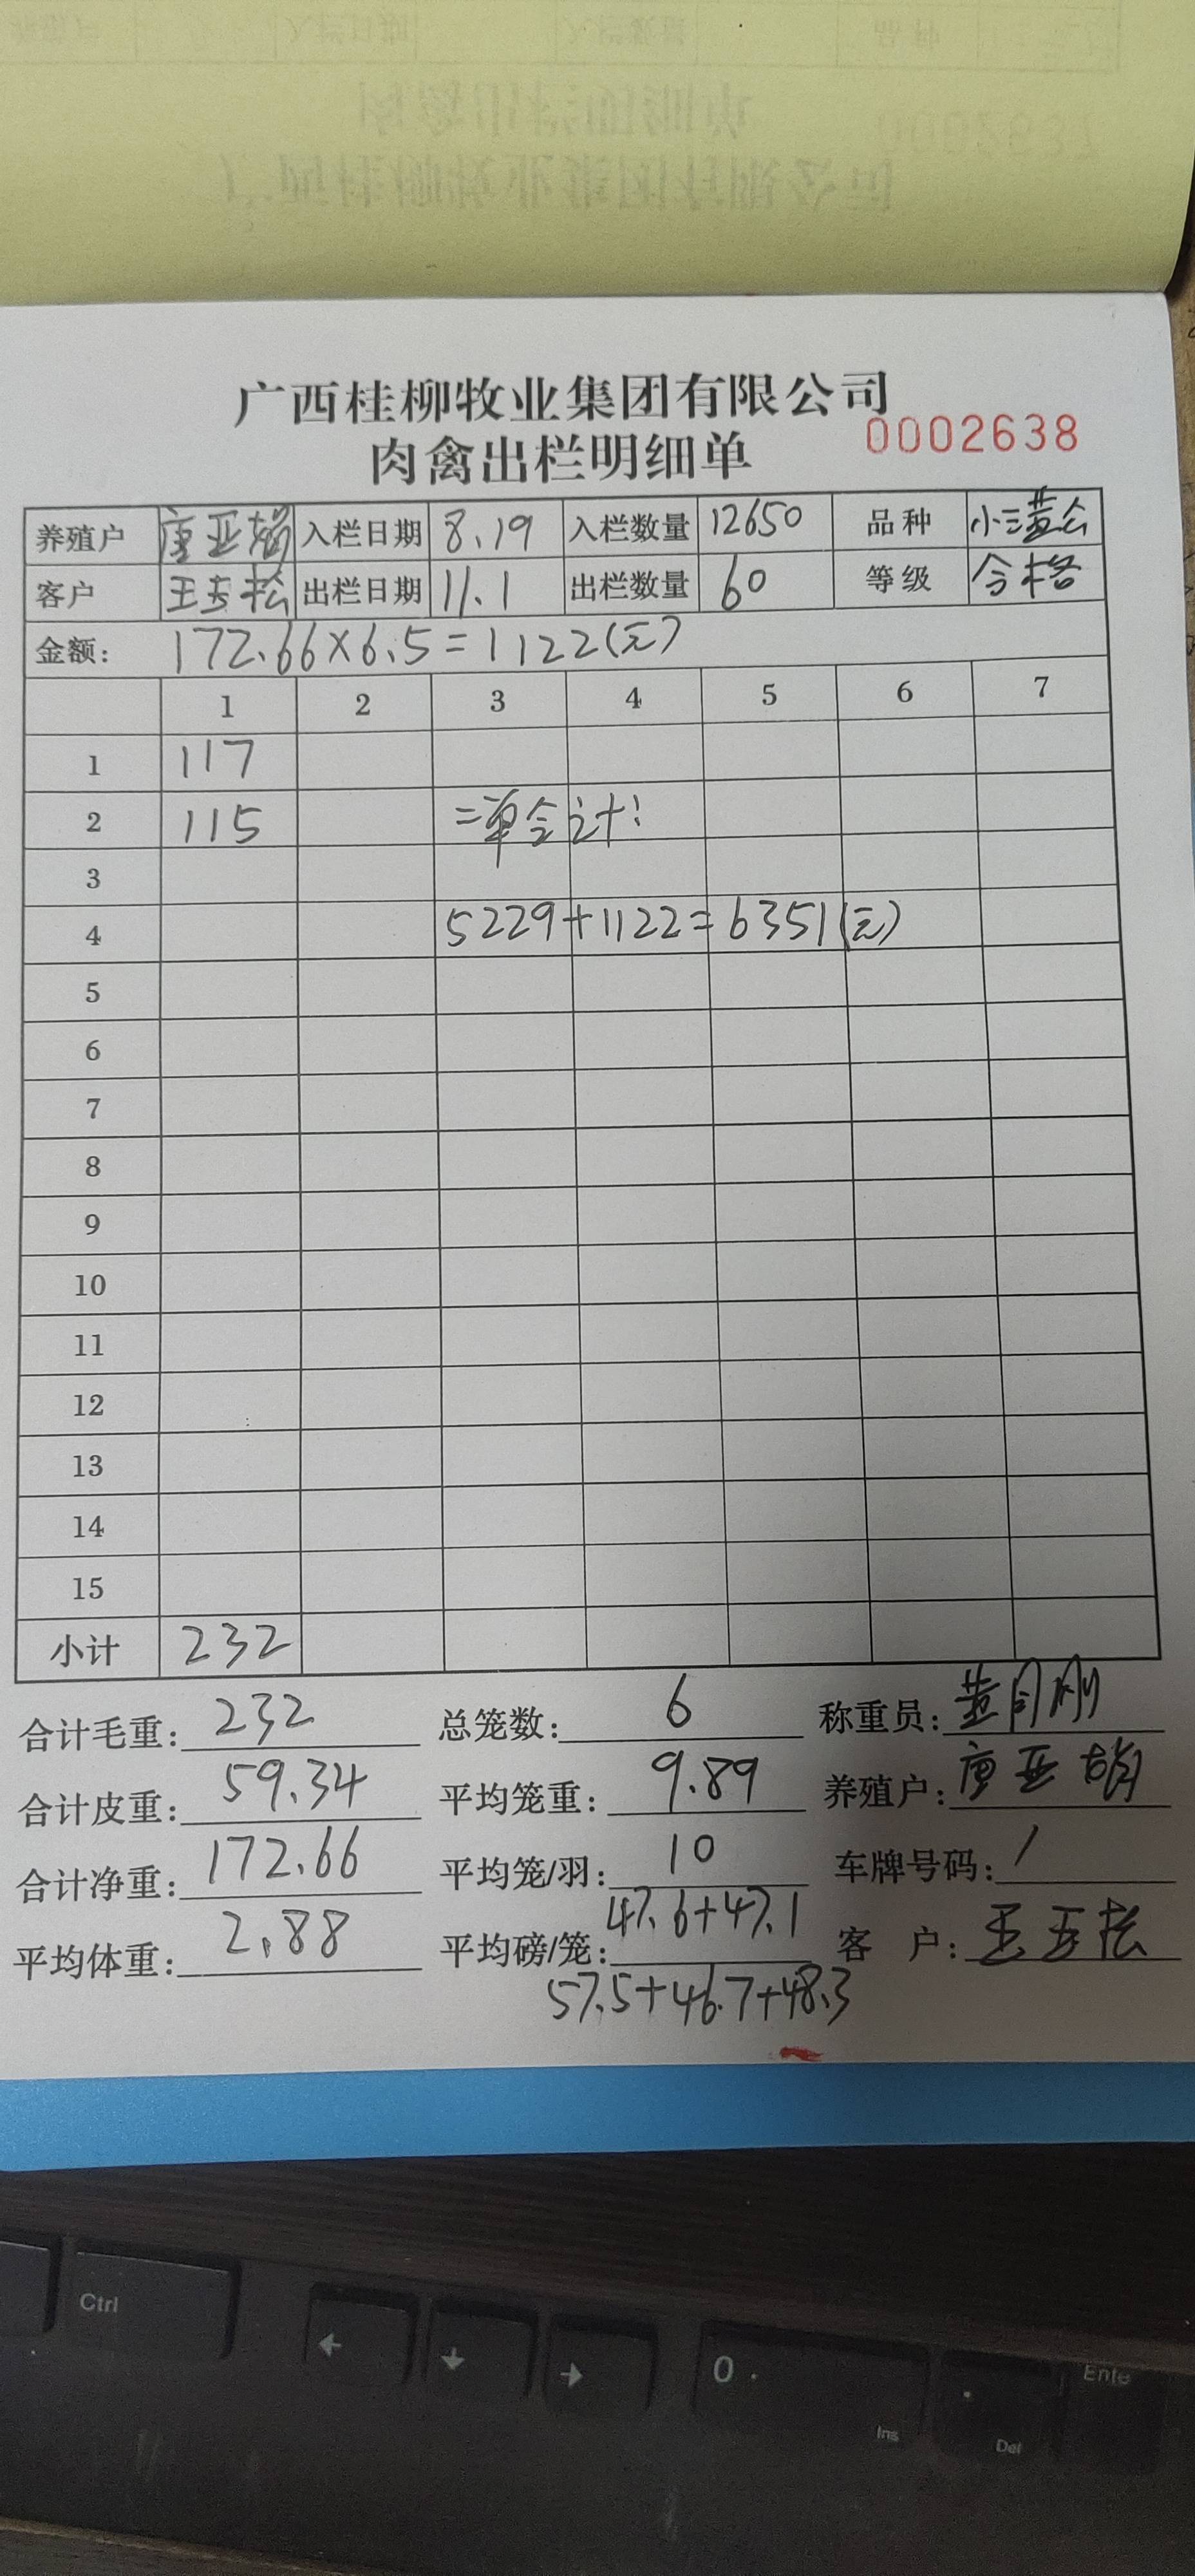 广西桂柳牧业集团有限公司
肉禽出栏明细单 0002638
养殖户 唐亚娟 入栏日期 8.19 入栏数量 12650 品种 小三黄公
客户 王玉松 出栏日期 11.1 出栏数量 60 等级 合格
金额: 172.66×6.5=1122(元)
1 2 3 4 5 6 7
1 117
2 115 二单合计:
3
4 5229+1122=6351(元)
5
6
7
8
9
10
11
12
13
14
15
小计 232
合计毛重: 232 总笼数: 6 称重员: 黄月刚
合计皮重: 59.34 平均笼重: 9.89 养殖户: 唐亚娟
合计净重: 172.66 平均笼/羽: 10 车牌号码: /
平均体重: 2.88 平均磅/笼: 47.6+47.1 客 户: 王玉松
57.5+46.7+48.3
Ctrl
← ↓ → 0 . Enter
Ins Del